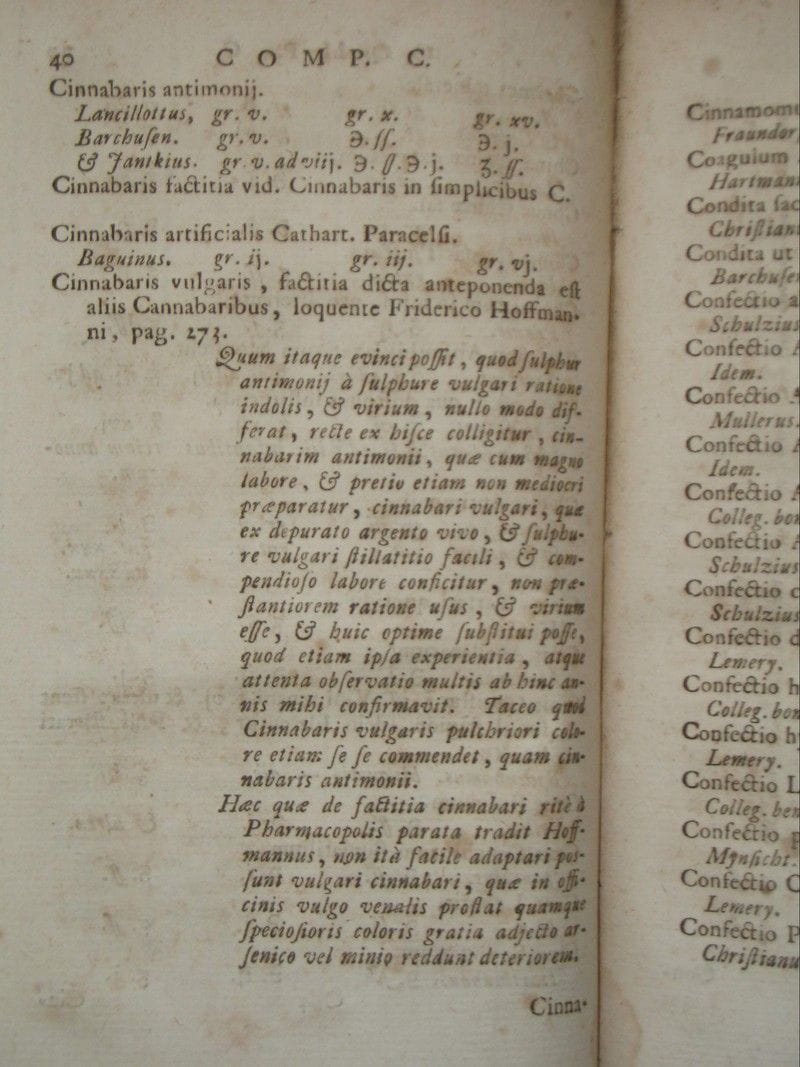 40 COMP. C.
Cinnabaris antimonij.
Lancillottus, gr. v. gr. x. gr. xv.
Barchuſen. gr. v. ℈. ſſ. ℈. j.
& Jantkius. gr. v. ad viij. ℈. ſſ. ℈. j. ʒ. ſſ.
Cinnabaris factitia vid. Cinnabaris in ſimplicibus C.
Cinnabaris artificialis Cathart. Paracelſi.
Baguinus. gr. ij. gr. iij. gr. vj.
Cinnabaris vulgaris , factitia dicta anteponenda eſt
aliis Cannabaribus, loquente Friderico Hoffman-
ni, pag. 273.
Quum itaque evinci poſſit, quod ſulphur
antimonij à ſulphure vulgari ratione
indolis, & virium, nullo modo dif-
ferat, recte ex hiſce colligitur, cin-
nabarim antimonii, quæ cum magno
labore, & pretio etiam non mediocri
præparatur, cinnabari vulgari, quæ
ex depurato argento vivo, & ſulphu-
re vulgari ſtillatitio facili, & com-
pendioſo labore conficitur, non præ-
ſtantiorem ratione uſus, & virium
eſſe, & huic optime ſubſtitui poſſe,
quod etiam ipſa experientia, atque
attenta obſervatio multis ab hinc an-
nis mihi confirmavit. Taceo quod
Cinnabaris vulgaris pulchriori colo-
re etiam ſe ſe commendet, quam cin-
nabaris antimonii.
Hæc quæ de factitia cinnabari ritè à
Pharmacopolis parata tradit Hoff-
mannus, non ità facile adaptari poſ-
ſunt vulgari cinnabari, quæ in offi-
cinis vulgo venalis proſtat quamque
ſpecioſioris coloris gratia adjecto ar-
ſenico vel minio reddunt deteriorem.
Cinna-
Cinnamom
Fraundor
Coaguium
Hartman
Condita fac
Chriſtian
Condita ut
Barchuſe
Confectio a
Schulzius
Confectio
Idem.
Confectio
Mullerus.
Confectio
Idem.
Confectio
Colleg. bon
Confectio
Schulzius
Confectio c
Schulzius
Confectio d
Lemery.
Confectio h
Colleg. bon
Confectio h
Lemery.
Confectio L
Colleg. ben
Confectio p
Mynſicht.
Confectio C
Lemery.
Confectio P
Chriſtianu